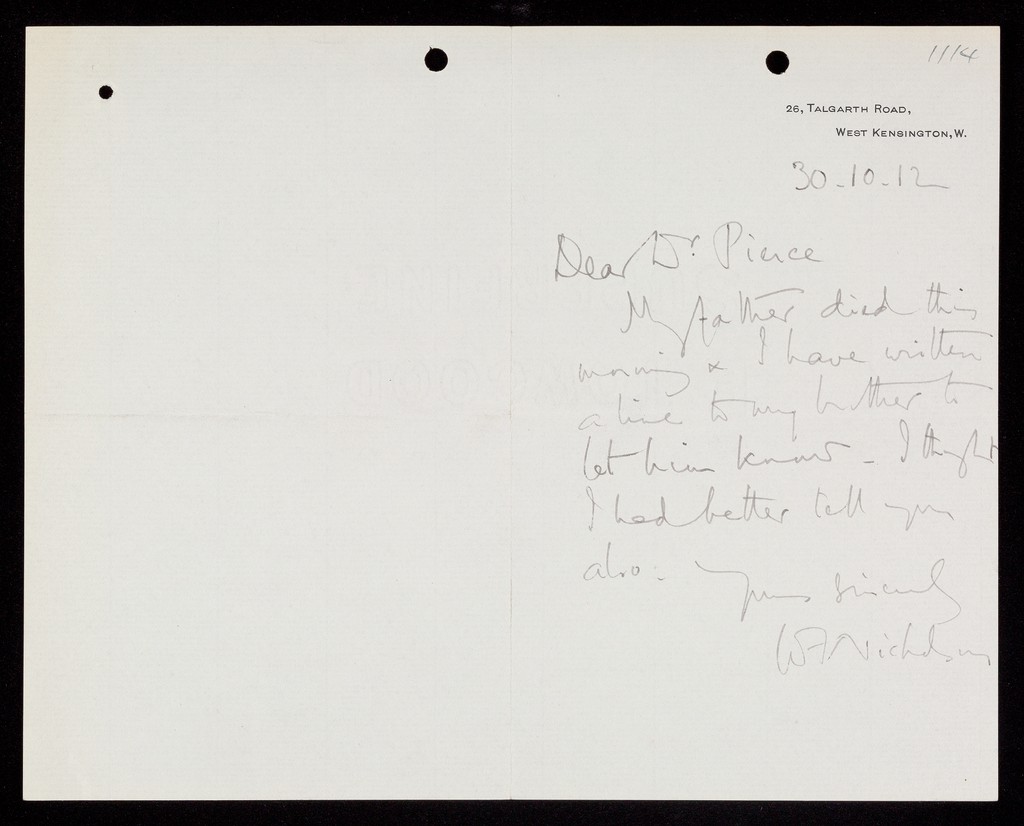 1114
26, TALGARTH ROAD,
WEST KENSINGTON, W.
30-10-12
Dear Dr. Pierce
My father died this
morning & I have written
a line to my brother to
let him know - I thought
I had better tell you
also.
Yours sincerely
WF Nicholson